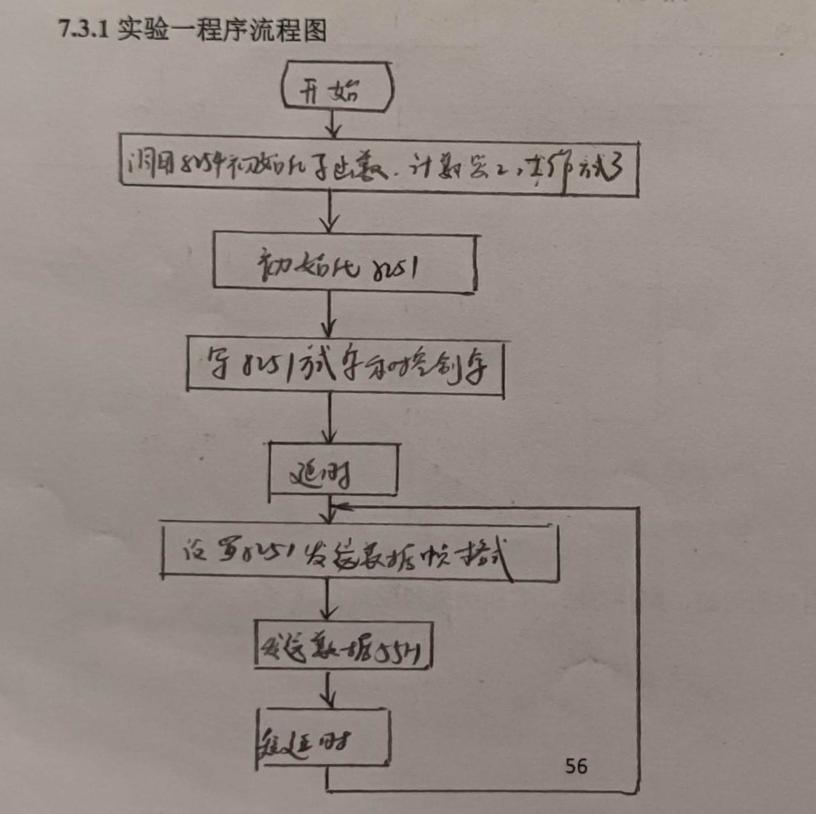 7.3.1 实验一程序流程图
开始
调用8254初始化子函数.计数器2,工作方式3
初始化8251
写8251方式字和控制字
延时
设置8251发送数据帧格式
发送数据55H
延时
56